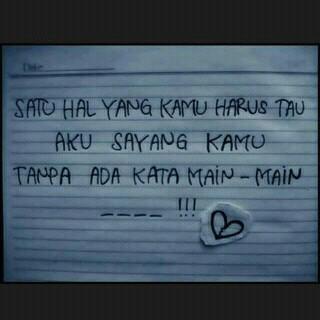 SATU HAL YANG KAMU HARUS TAU
AKU SAYANG KAMU
TANPA ADA KATA MAIN - MAIN
_ _ _ _ !!!